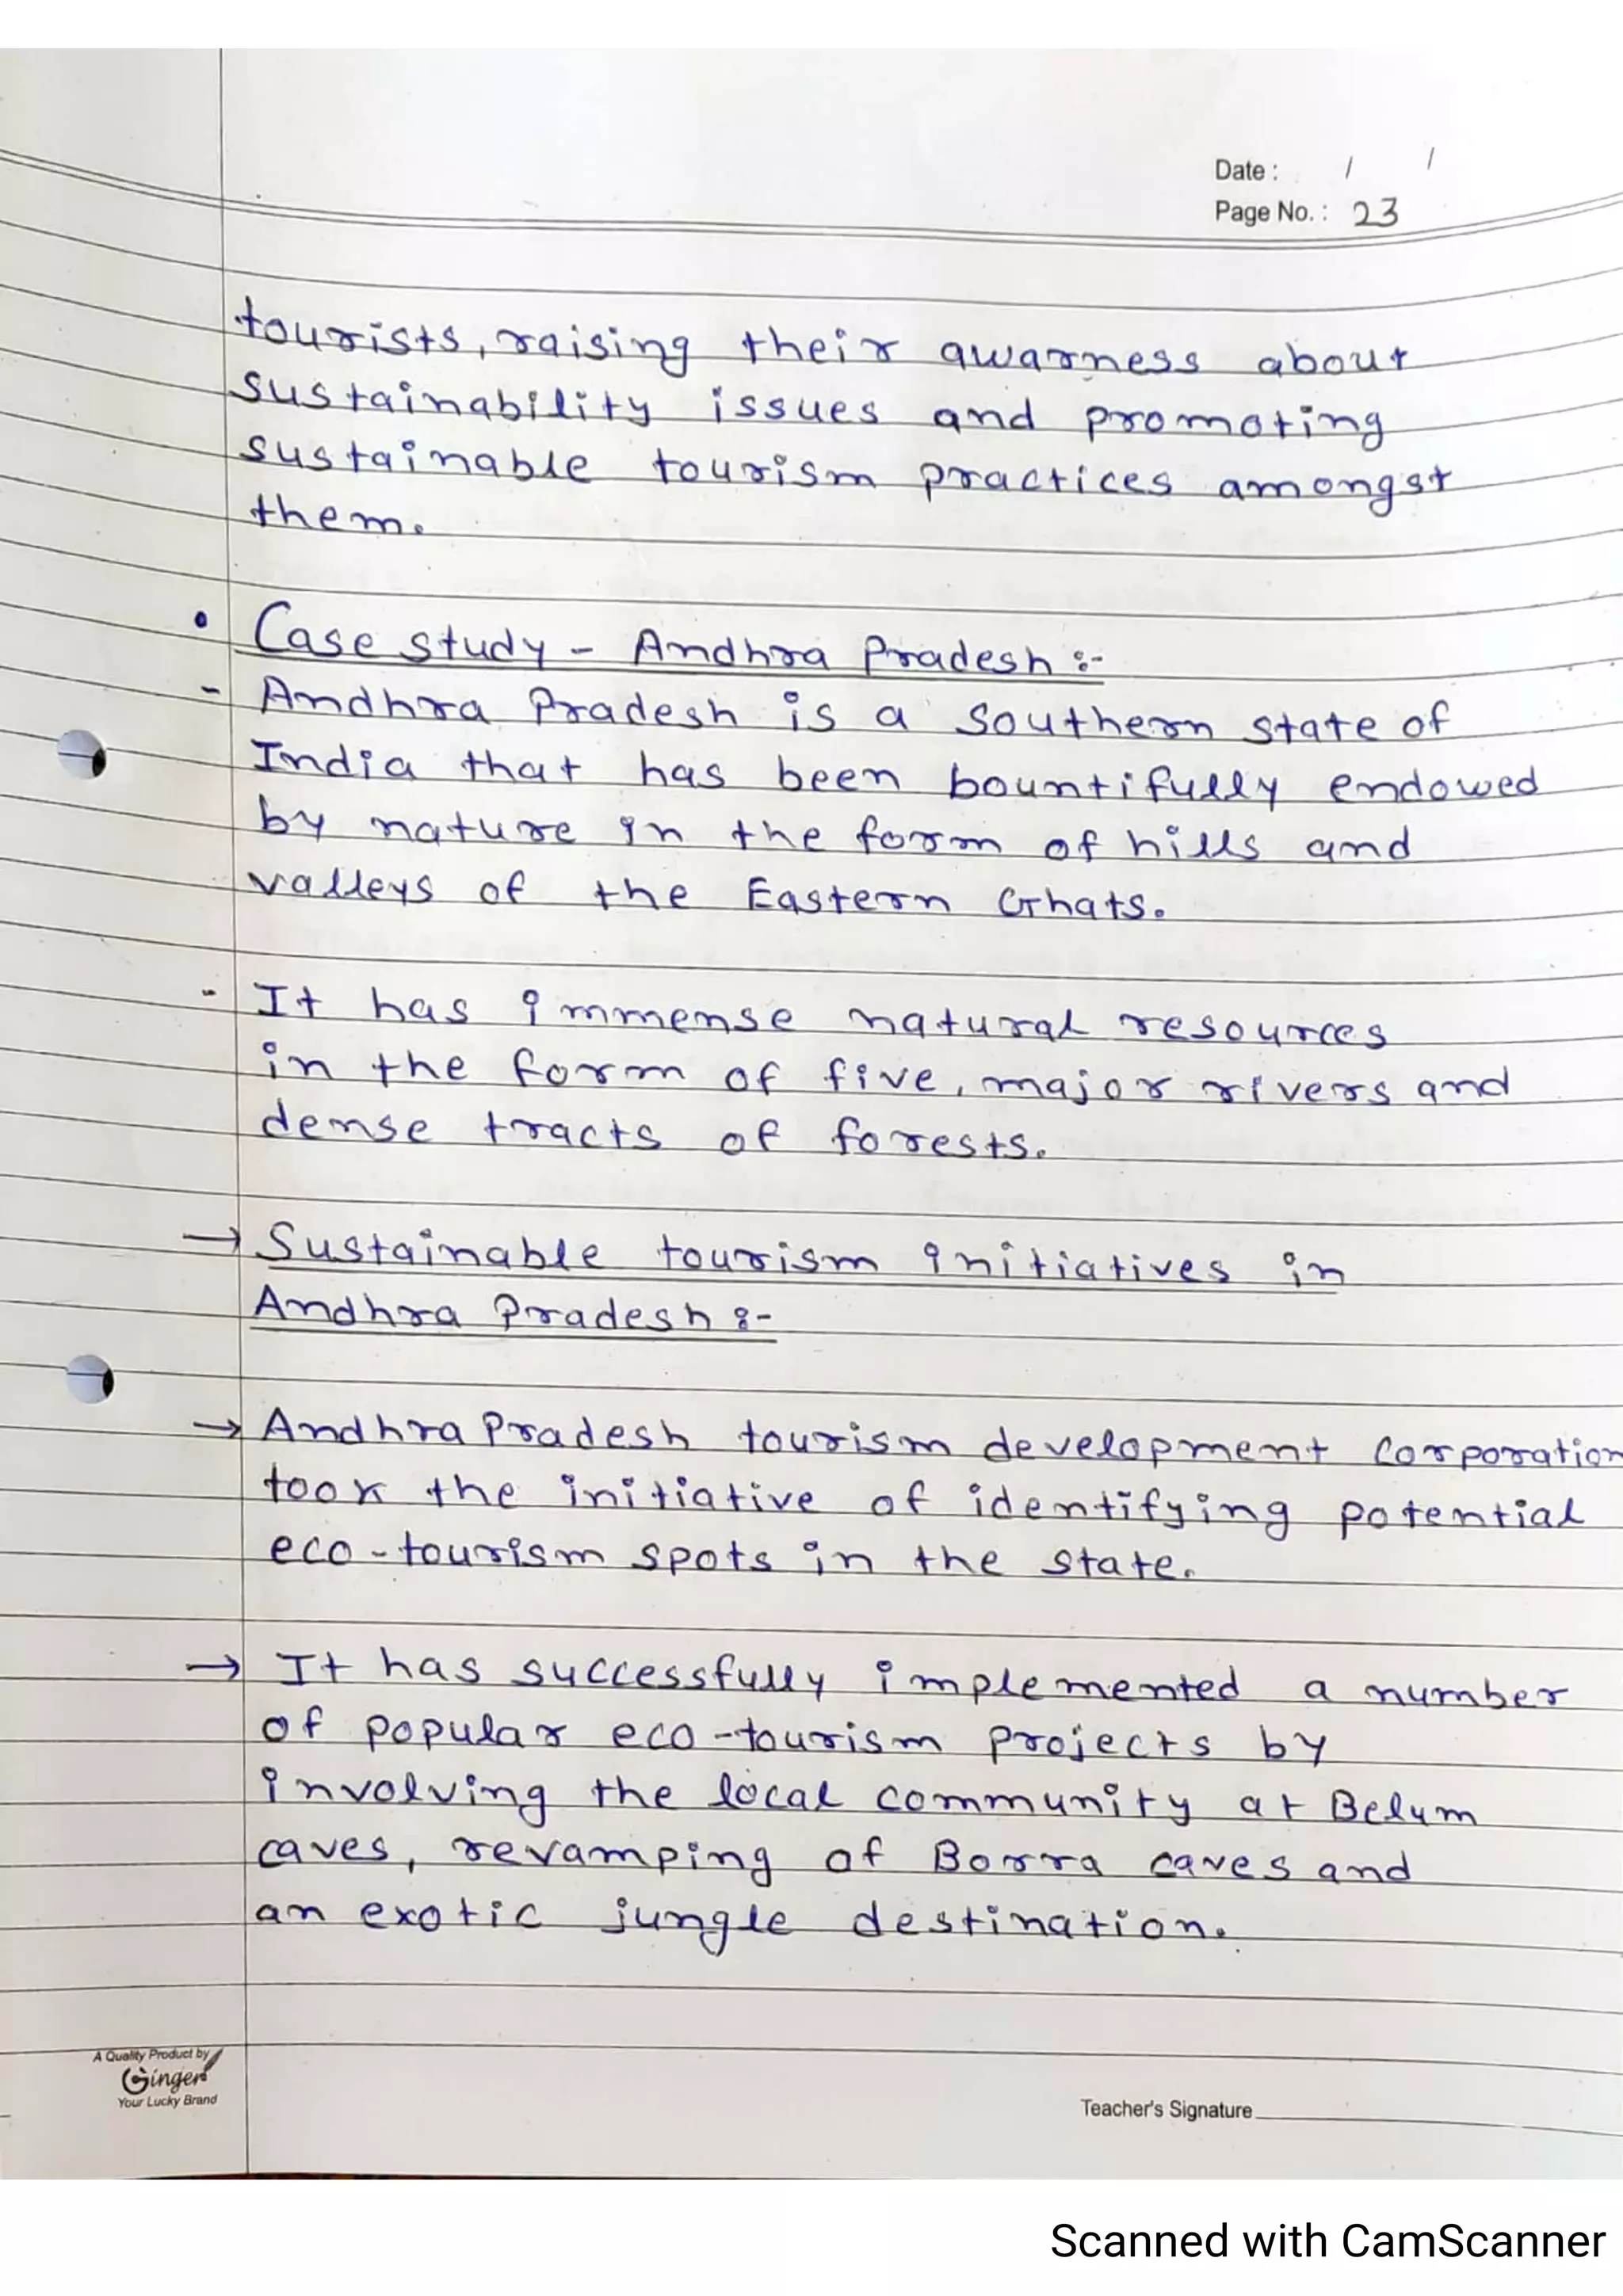 Date : / /
Page No. : 23
tourists, raising their awarness about
sustainability issues and promoting
sustainable tourism practices amongst
them.
• Case study - Andhra Pradesh :-
- Andhra Pradesh is a southern state of
India that has been bountifully endowed
by nature in the form of hills and
valleys of the Eastern Ghats.
- It has immense natural resources
in the form of five, major rivers and
dense tracts of forests.
→ Sustainable tourism initiatives in
Andhra Pradesh :-
→ Andhra Pradesh tourism development corporation
took the initiative of identifying potential
eco-tourism spots in the state.
→ It has successfully implemented a number
of popular eco-tourism projects by
involving the local community at Belum
caves, revamping of Borra caves and
an exotic jungle destination.
A Quality Product by
Ginger
Your Lucky Brand
Teacher's Signature
Scanned with CamScanner